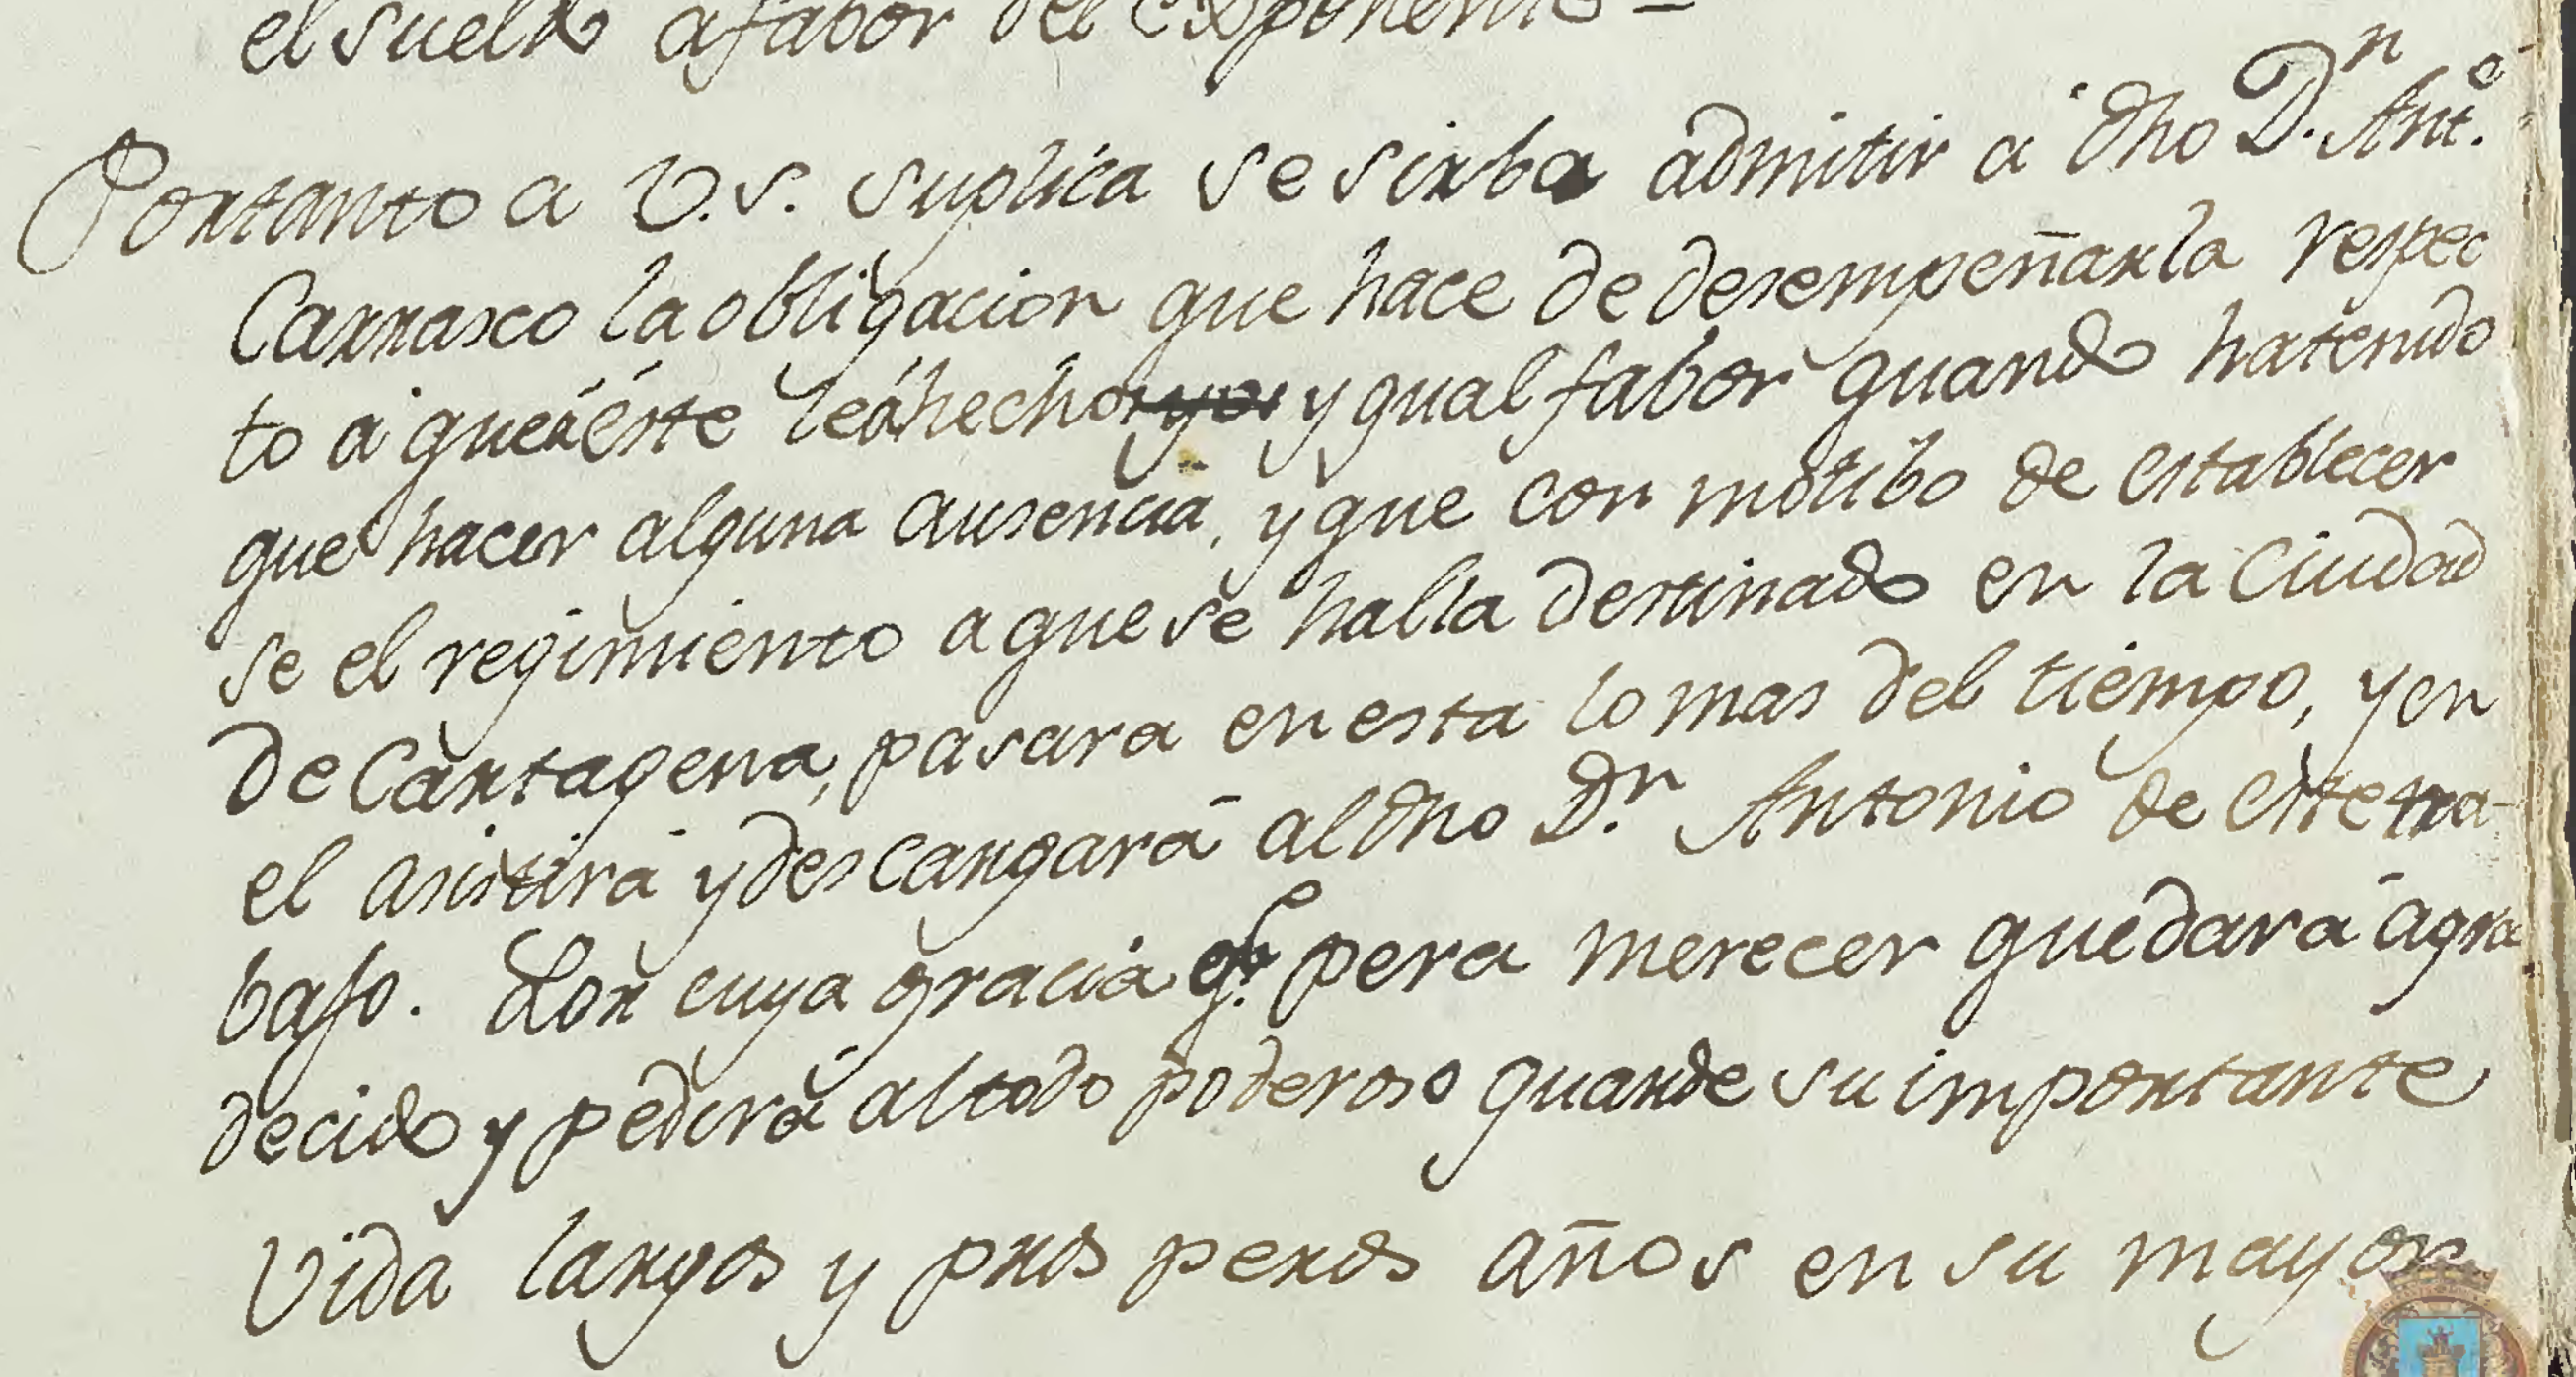 el sueldo a fabor del exponente =
Portanto a V.S. suplica se sirba admitir a dho Dn. Anto.
Carrasco la obligacion que hace de desempeñarla respec
to a que este le á hecho y gual fabor quando ha tenido
que hacer alguna ausencia, y que con motibo de establecer
se el regimiento a que se halla destinado en la Ciudad
de Cartagena, pasara en esta lo mas del tiempo, y en
el asistirá y descargará al dho Dn. Antonio de este tra-
bajo. Por cuya gracia qe. espera merecer quedará agra
decido y pedirá al todo poderoso guarde su importante
Vida largos y prosperos años en su mayor